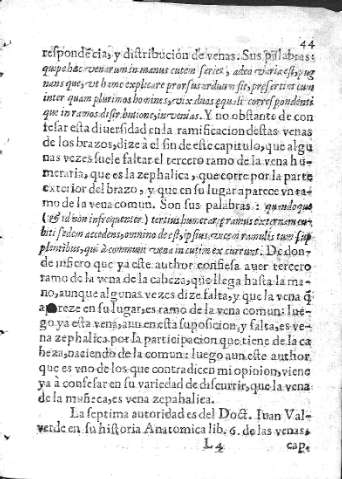 44
respondẽcia, y distribución de venas. Sus palabras:
quipe hæc venarum in manus cutem series, adeo varia est, pug
nansque, vt hunc explicare prorsus arduum sit, præsertim cum
inter quam plurimos homines, vix duas equali correspondenti
que in ramos distributione, invenias. Y no obstante de con
fesar esta diversidad en la ramificacion destas venas
de los brazos, dize à el fin de este capitulo, que algu
nas vezes suele faltar el tercero ramo de la vena hu-
meraria, que es la zephalica, que corre por la parte
exterior del brazo, y que en su lugar aparece vn ra-
mo de la vena comun. Son sus palabras: quandoque
id non infrequenter) tertius humerar. ramus externam cu-
biti sedem accedens, omnino de est, ipsius ramulis tum sup
plentibus, qui à commun vena in cutim excurrunt. De don-
de infiero que ya este author confiesa auer tercero
ramo de la vena de la cabeza, que llega hasta la ma-
no, aunque algunas vezes dize falta, y que la vena q̃
apareze en su lugar, es ramo de la vena comun: lue-
go ya esta vena, aun en esta suposicion, y falta, es ve-
na zephalica por la participacion que tiene de la ca
beza, naciendo de la comun: luego aun este author
que es vno de los que contradicen mi opinion, viene
ya à confesar en su variedad de discurrir, que la vena
de la muñeca, es vena zephalica.
La septima autoridad es del Doct. Iuan Val-
verde en su historia Anatomica lib. 6. de las venas,
L 4 cap.